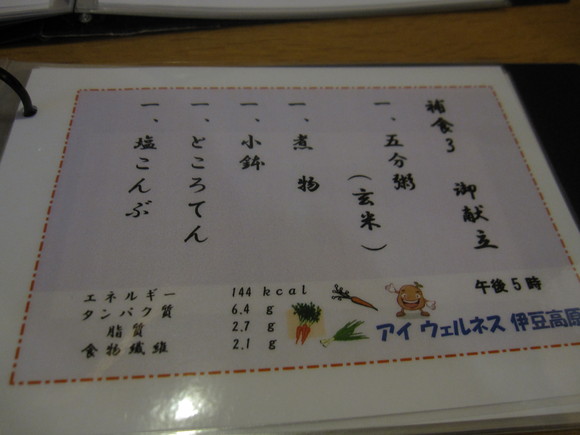 補食3 御献立
一、五分粥
(玄米)
一、煮物
一、小鉢
一、ところてん
一、塩こんぶ
午後5時
エネルギー 144 kcal
タンパク質 6.4 g
脂質 2.7 g
食物繊維 2.1 g
アイ ウェルネス 伊豆高原